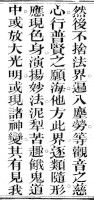 然後不捨法界遍入塵勞等觀音之慈
心行普賢之願海他方此界逐類隨形
應現色身演揚妙法泥犁苦趣餓鬼道
中或放大光明或現諸神變其有見我